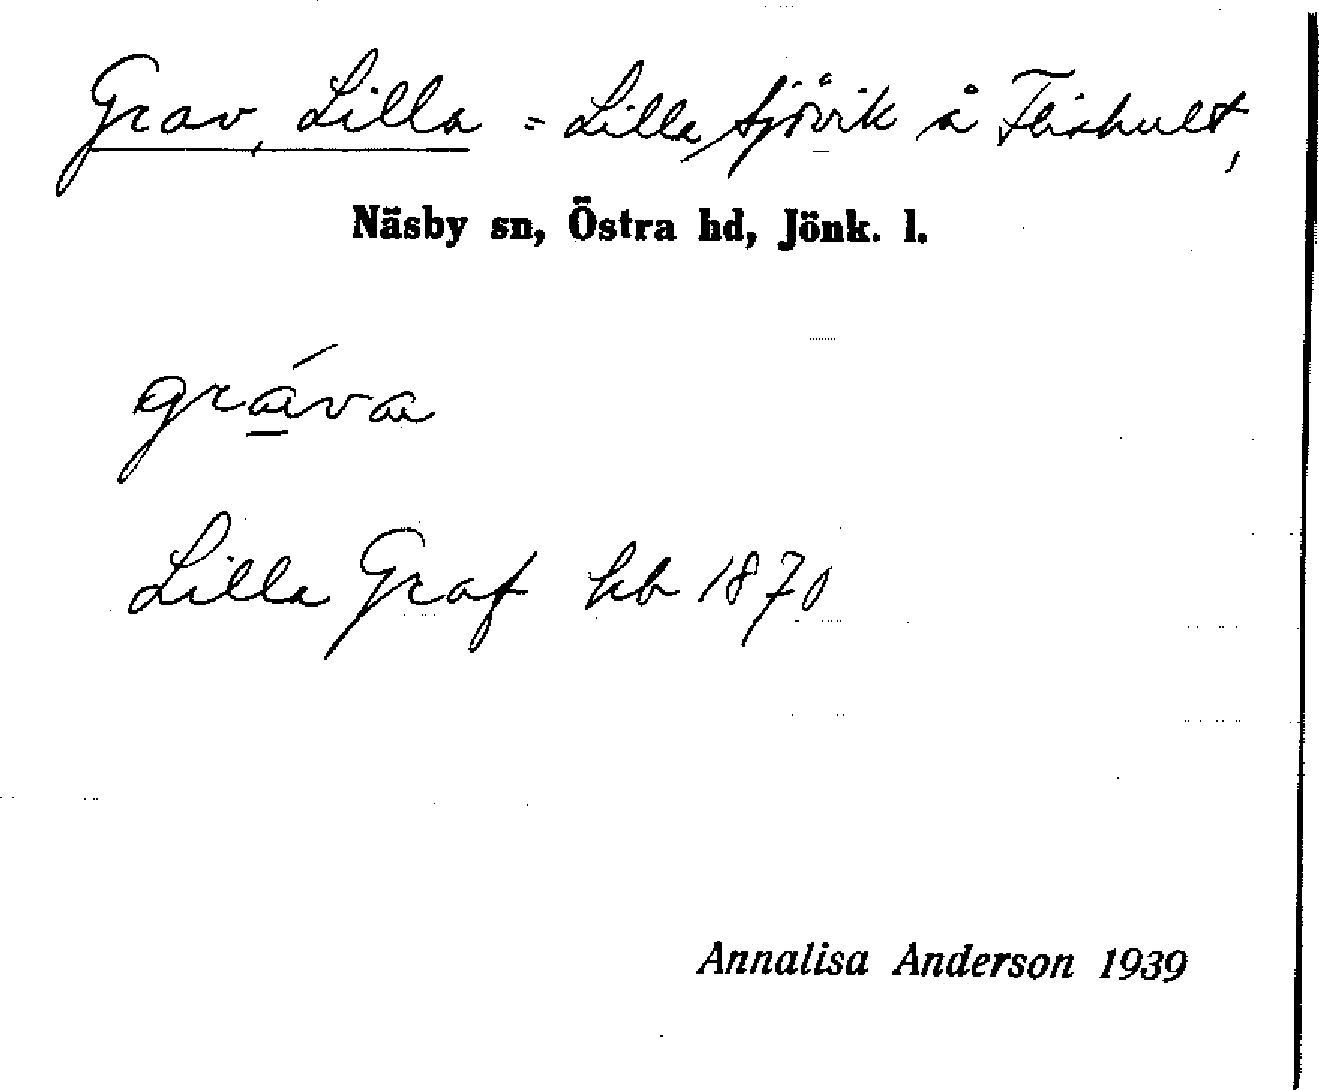 Grav, Lilla = Lilla Sjövik å Fläshult,
Näsby sn, Östra hd, Jönk. l.
gráva
Lilla Graf hb 1870
Annalisa Anderson 1939